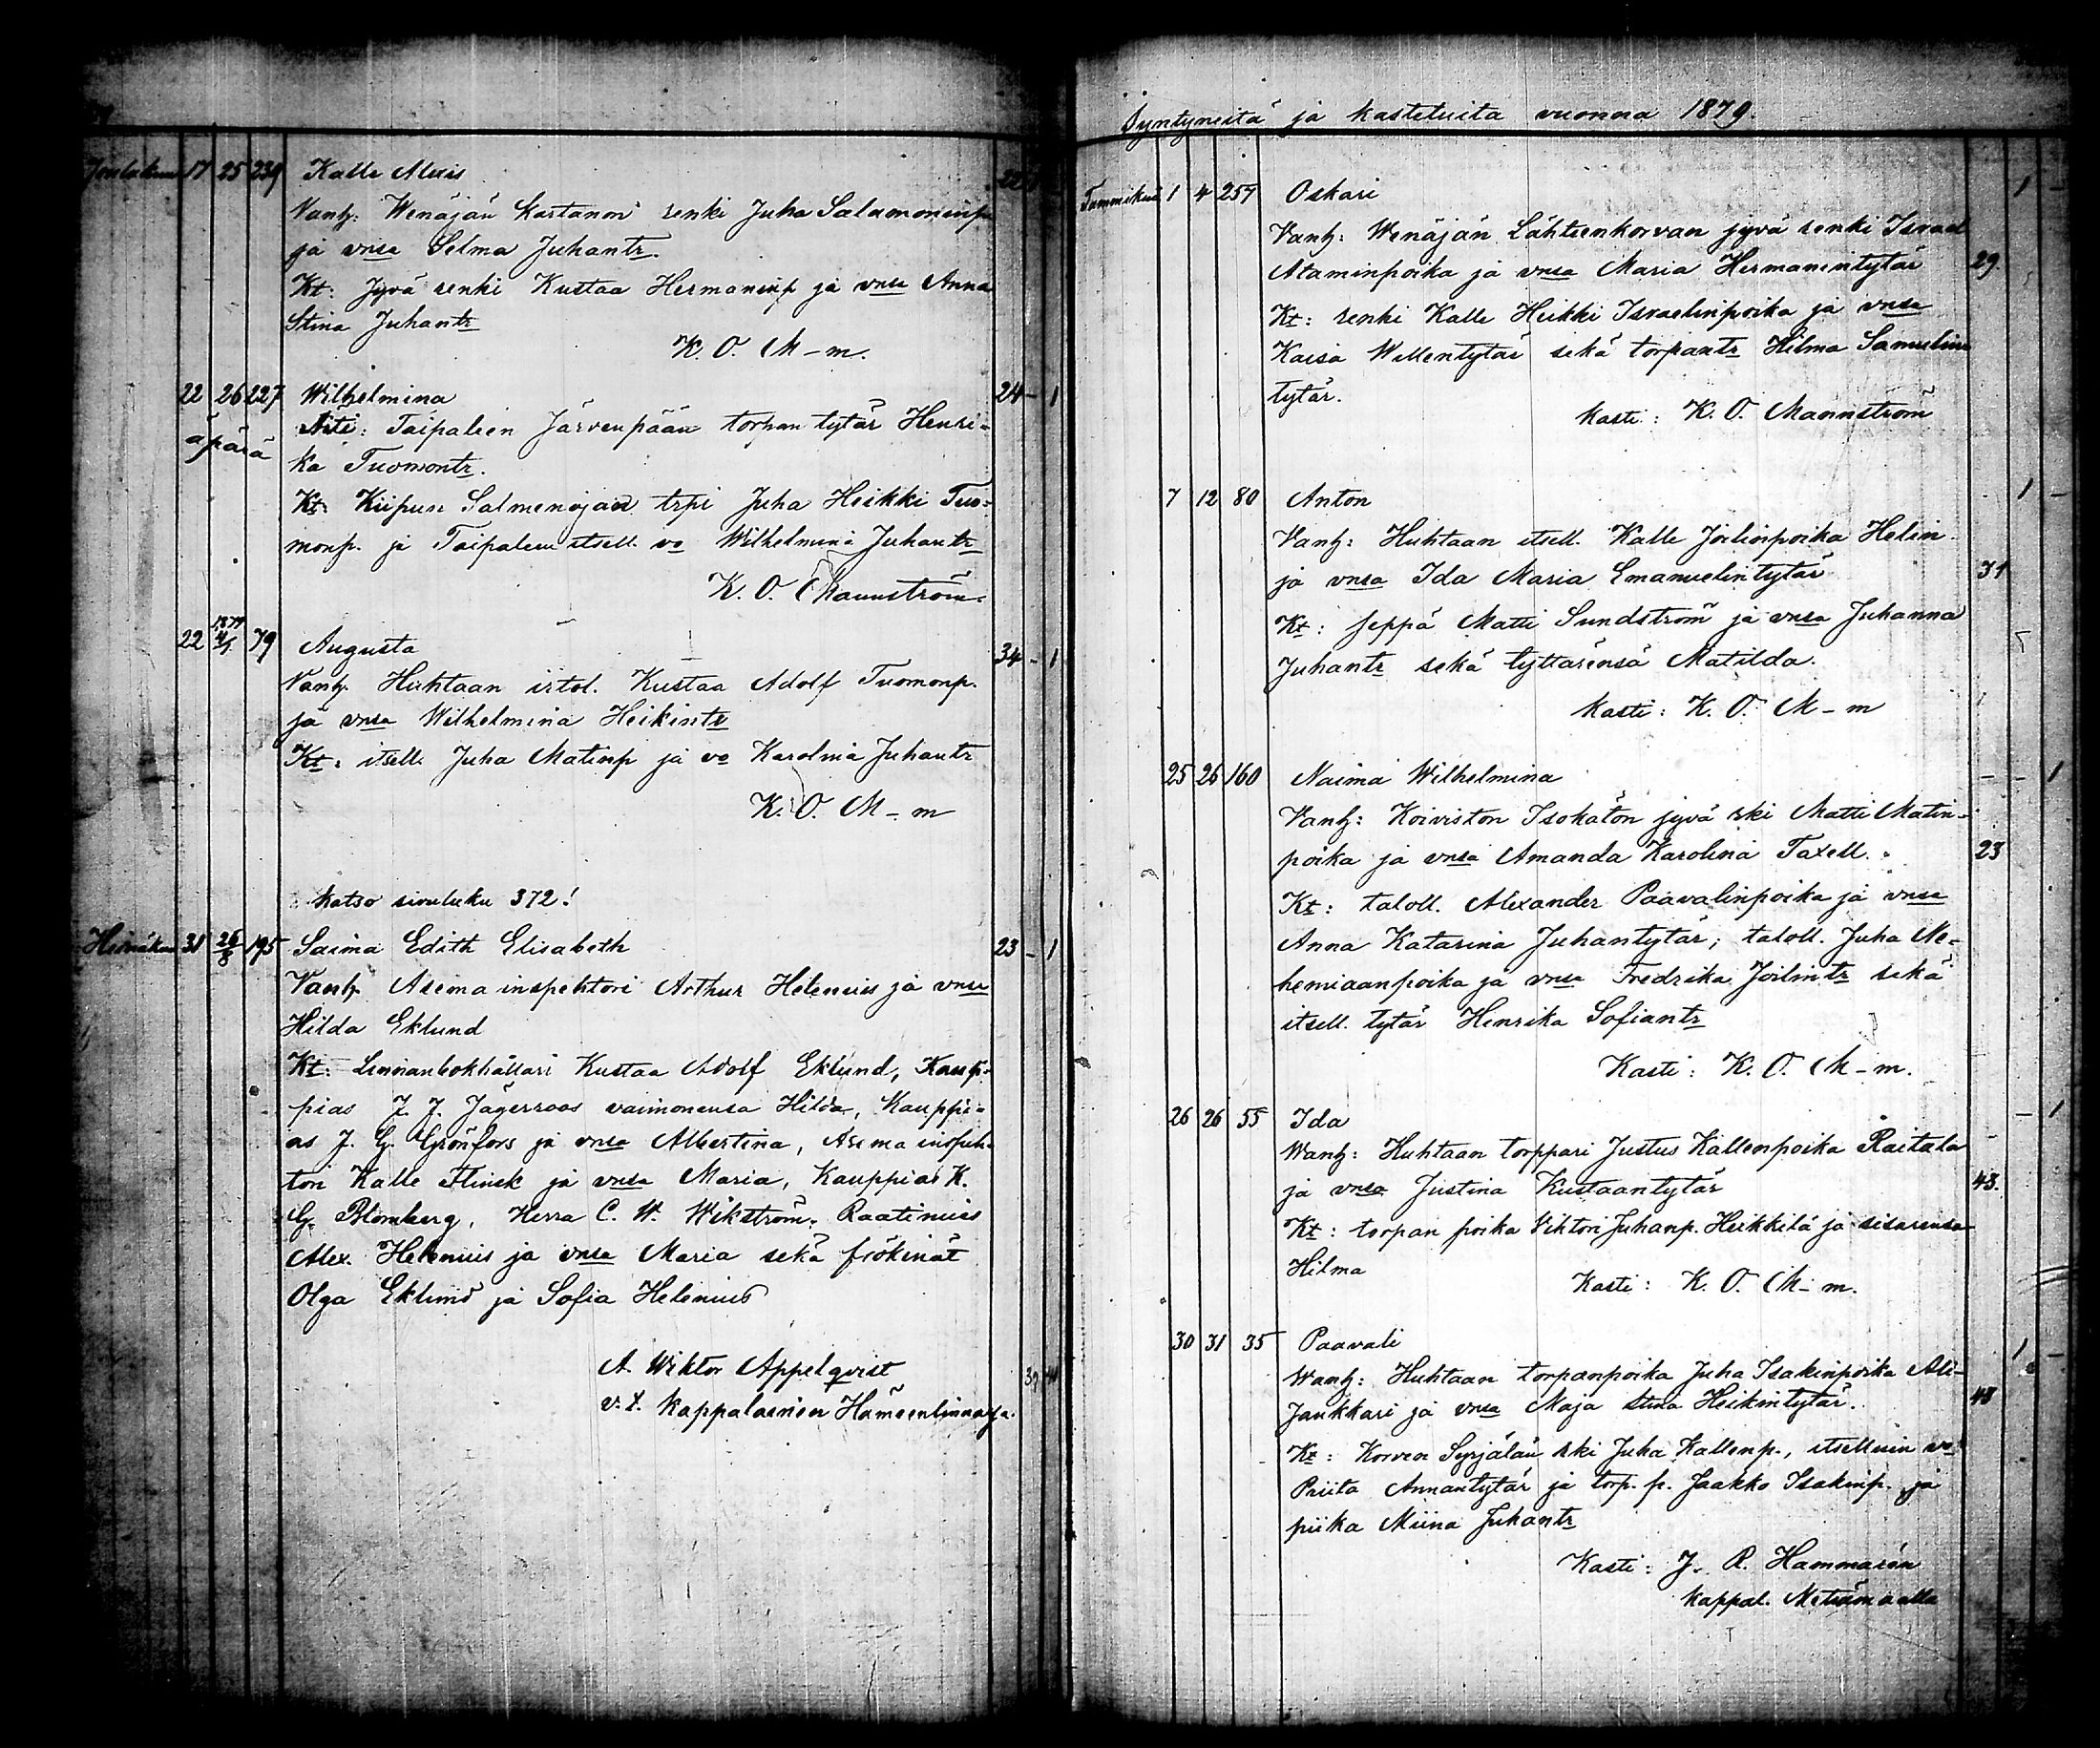 Joulukuu 17 25 239 Kalle Alexis 22 1 -
Vanh: Wenäjän Kartanon renki Juha Salamoninp
ja vnsa Selma Juhantr.
Kt: Jyvä renki Kustaa Hermaninp ja vnsa Anna
Stina Juhantr
K. O. M-m.
22 26 227 Wilhelmina 24 - 1
äpärä Äiti: Taipaleen Järvenpään torpan tytär Henri-
ka Tuomontr.
Kt: Kiipun Salmenojan trpi Juha Heikki Tuo-
monp. ja Taipaleen itsell. vo Wilhelmina Juhantr
K. O. Mannström.
22 1879 4/1 79 Augusta 34 - 1
Vanh. Huhtaan irtol. Kustaa Adolf Tuomonp.
ja vnsa Wilhelmina Heikintr
Kt: itsell. Juha Matinp ja vo Karolina Juhantr
K. O. M-m
Katso sivuluku 372!
Heinäkuu 31 26/8 195 Saima Edith Elisabeth 23 - 1
Vanh. Asema inspehtori Arthur Helenius ja vnsa
Hilda Eklund
Kt: Linnanbokhållari Kustaa Adolf Eklund, Kaup-
pias J. J. Jägerroos vaimonensa Hilda, Kauppi-
as J. G. Grönfors ja vnsa Albertina, Asema inspeh-
tori Kalle Flinck ja vnsa Maria, Kauppias K.
G. Blomberg, Herra C. W. Wikström, Raatimies
Alex. Helenius ja vnsa Maria sekä frökinät
Olga Eklund ja Sofia Helenius
A. Wiktor Appelqvist
v.t. Kappalainen Hämeenlinnassa.
Syntyneitä ja kastetuita vuonna 1879.
Tammikuu 1 4 257 Oskari 1 -
Vanh: Wenäjän Lähteenkorvan jyvä renki Israel
Ataminpoika ja vnsa Maria Hermanintytär 29.
Kt: renki Kalle Heikki Israelinpoika ja vnsa
Kaisa Willentytär sekä torpantr Hilma Samulin
tytär.
Kasti: K. O. Mannström
7 12 80 Anton 1 -
Vanh: Huhtaan itsell. Kalle Joilinpoika Helin
ja vnsa Ida Maria Emanuelintytär 31
Kt: seppä Matti Sundström ja vnsa Juhanna
Juhantr sekä tyttärensä Matilda.
Kasti: K. O. M-m
25 26 160 Naima Wilhelmina - 1
Vanh: Koiviston Isokäton jyvä rki Matti Matin-
poika ja vnsa Amanda Karolina Taxell. 23
Kt: taloll. Alexander Paavalinpoika ja vnsa
Anna Katarina Juhantytär; taloll. Juha Ne-
hemiaanpoika ja vnsa Fredrika Joilintr sekä
itsell. tytär Henrika Sofiantr
Kasti: K. O. M-m.
26 26 55 Ida - 1
Wanh: Huhtaan torppari Justus Kallenpoika Raitala
ja vnsa Justina Kustaantytär 43.
Kt: torpan poika Viktori Juhanp. Heikkilä ja sisarensa
Hilma
Kasti: K. O. M-m.
30 31 35 Paavali 1 -
Wanh: Huhtaan torpanpoika Juha Isakinpoika Ali-
Jaukkari ja vnsa Maja Stina Heikintytär. 48
Kt: Korven Syrjälän rki Juha Kallenp., itsellisen vo
Priita Annantytär ja torp. p. Jaakko Isakinp. ja
piika Miina Juhantr
Kasti: J. R. Hammarén
Kappal. Metsämaalla